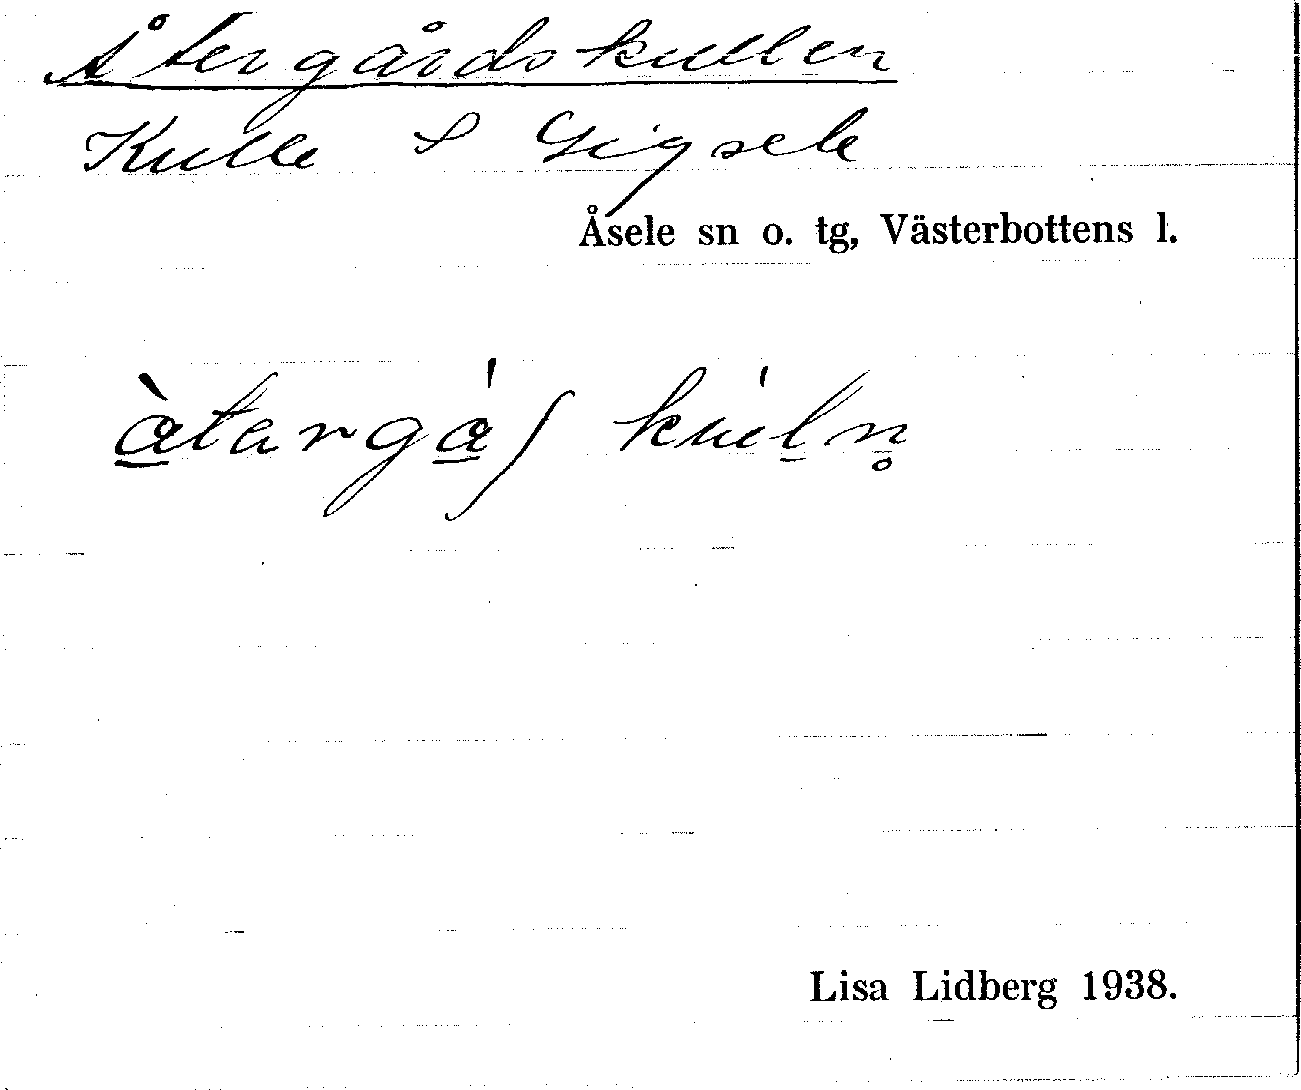 Återgårdskullen
Kulle S Gigsele
Åsele sn o. tg, Västerbottens l.
à̲targa̲̍ʃ kuìl̲n̥
Lisa Lidberg 1938.